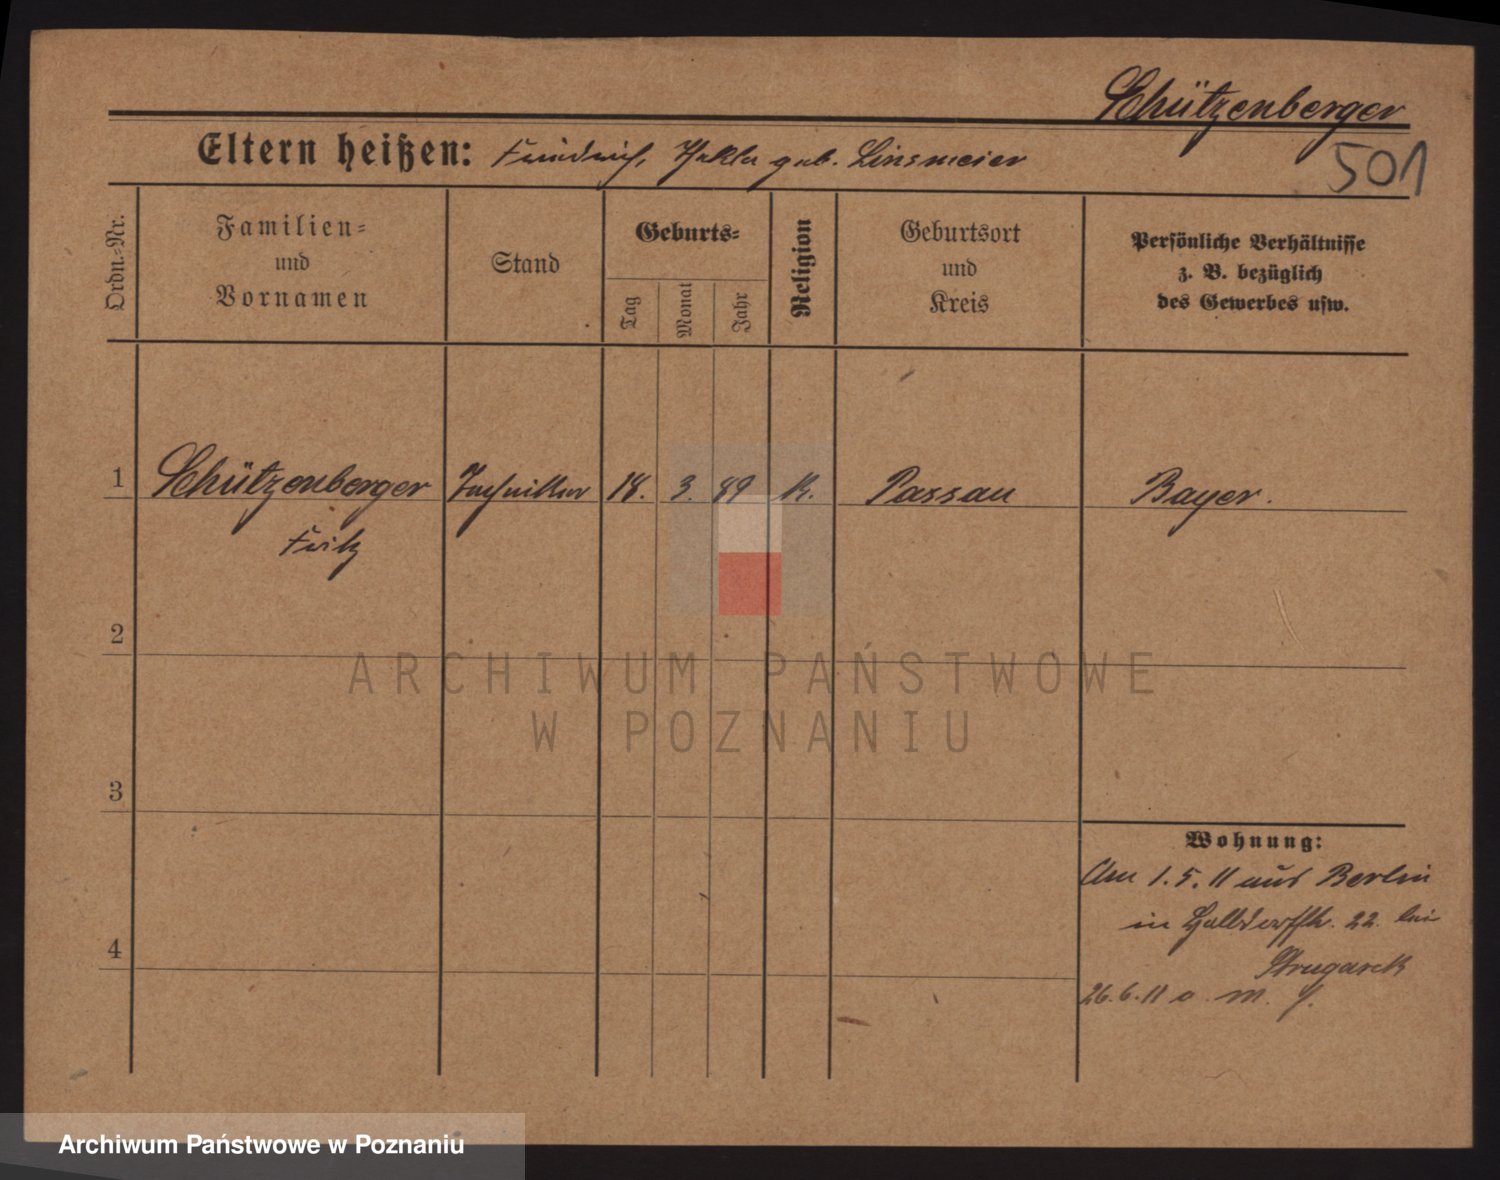 Schützenberger
Eltern heißen: Friedrich, Thekla geb. Linsmeier
501
Ordn.=Nr.
Familien=
und
Vornamen
Stand
Geburts=
Tag
Monat
Jahr
Religion
Geburtsort
und
Kreis
Persönliche Verhältnisse
z. B. bezüglich
des Gewerbes usw.
1 Schützenberger Techniker 18. 3. 89 k. Passau Bayer.
Fritz
2
ARCHIWUM PAŃSTWOWE
W POZNANIU
3
Wohnung:
Am 1.5.11 aus Berlin
in 22. bei
4
26.6.11
Archiwum Państwowe w Poznaniu